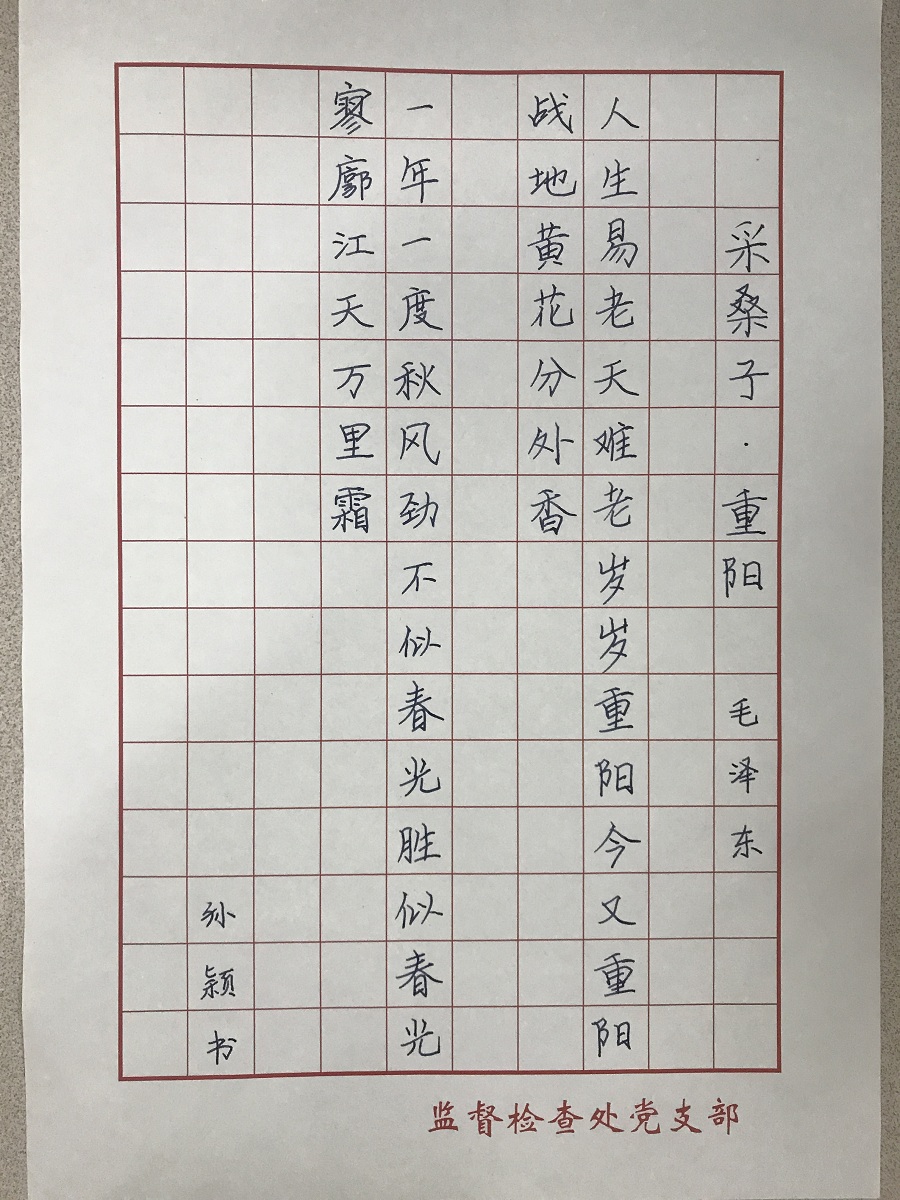 采桑子·重阳 毛泽东
人生易老天难老岁岁重阳今又重阳
战地黄花分外香
一年一度秋风劲不似春光胜似春光
寥廓江天万里霜
孙颖书
监督检查处党支部